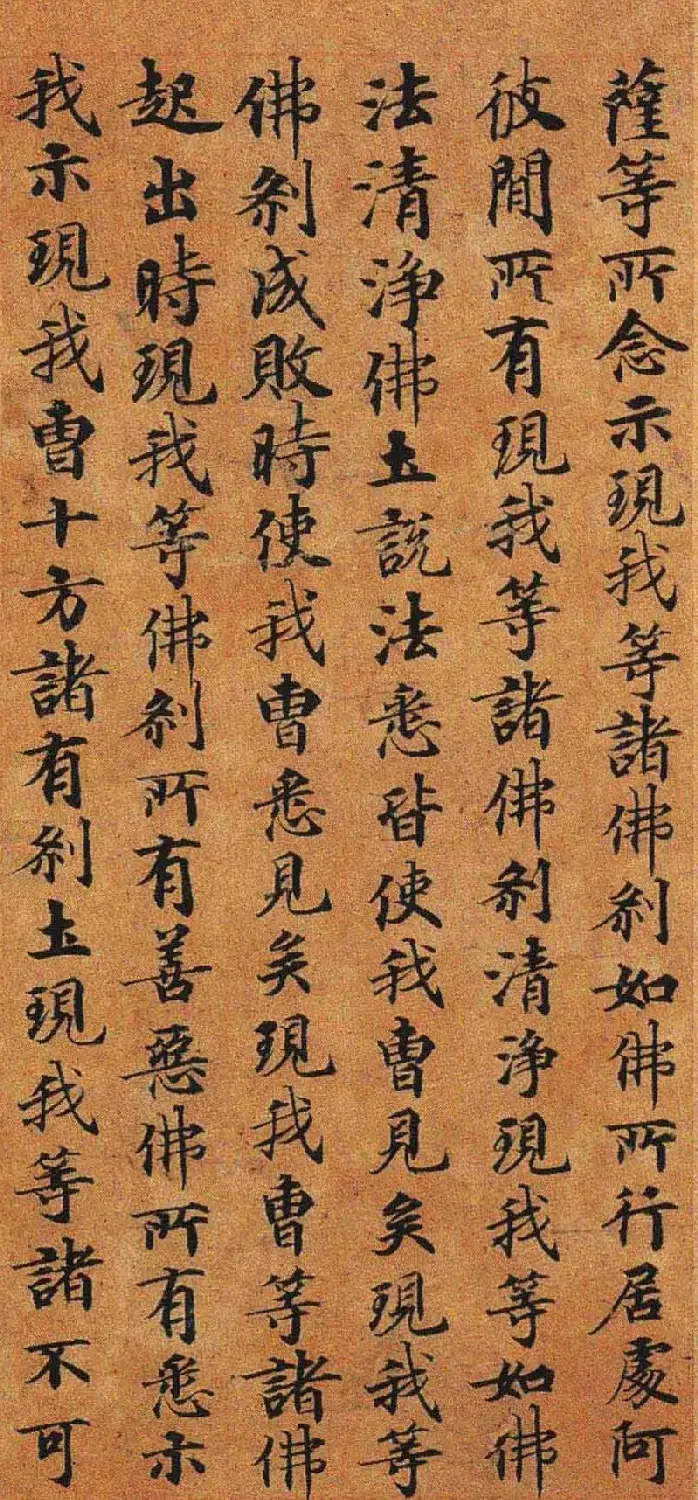 薩等所念示現我等諸佛刹如佛所行居處阿
彼間所有現我等諸佛刹清淨現我等如佛
法清淨佛土說法悉皆使我曹見矣現我等
佛刹成敗時使我曹悉見矣現我曹等諸佛
起出時現我等佛刹所有善惡佛所有悉示
我示現我曹十方諸有刹土現我等諸不可